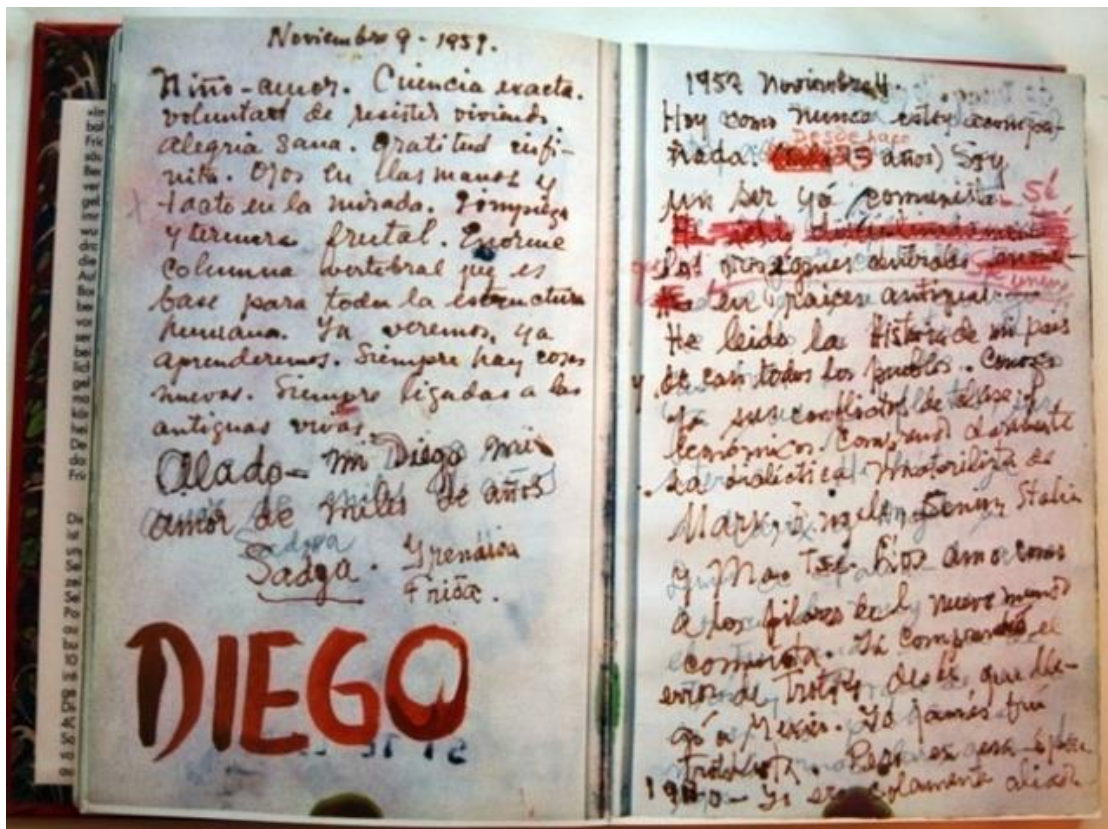 Noviembre 9 - 1951.
Niño-amor. Ciencia exacta.
voluntad de resistir viviendo
alegria sana. Gratitud infi-
nita. Ojos en las manos y
tacto en la mirada. Limpieza
y ternura frutal. Enorme
columna vertebral que es
base para toda la estructura
humana. Ya veremos, ya
aprenderemos. Siempre hay cosas
nuevas. Siempre ligadas a las
antiguas vivas.
Alado - mi Diego mi
amor de miles de años
Sadga. Yrenáica
Frida.
DIEGO
1952 Noviembre 4.
Hoy como nunca estoy acompa-
desde hace
ñada. 25 años) Soy
un ser yá comunista. Sé
los orígenes centrales
unen
en raices antiguas
He leido la Historia de mi país
y de casi todos los pueblos. Conozco
ya sus conflictos de clase y
económicos. Comprendo claramente
la dialéctica materialista de
Marx, Engels, Lenin, Stalin
y Mao Tse. Los amo como
a los pilares del nuevo mundo
comunista. Ya comprendí el
error de Trotsky desde que lle-
gó a Mexico. Yo jamás fuí
trotskista. Pero en esa época
1940 - yo era solamente aliada